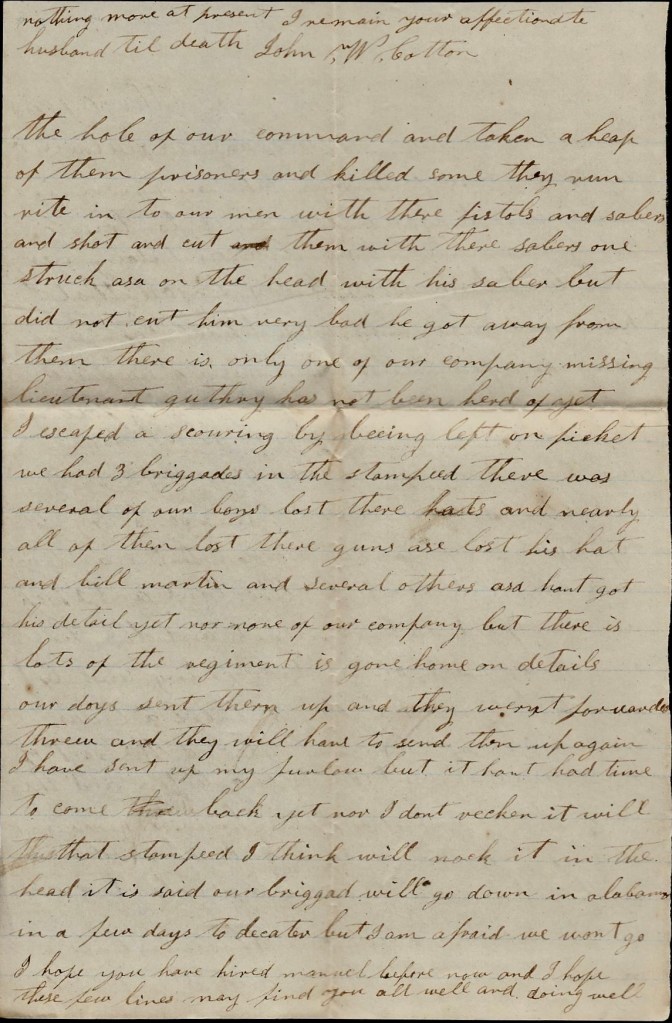 nothing more at present I remain your affectionate
husband til death John W. Cotton
the hole of our command and taken a heap
of them prisoners and killed some they run
rite in to our men with there pistols and sabers
and shot and cut them with there sabers one
struck asa on the head with his saber but
did not cut him very bad he got away from
them there is only one of our company missing
lieutenant guthry has not been herd of yet
I escaped a scouring by beeing left on picket
we had 3 briggades in the stampeed there was
several of our boys lost there hats and nearly
all of them lost there guns ase lost his hat
and bill martin and several others asa hant got
his detail yet nor none of our company but there is
lots of the regiment is gone home on details
our days sent them up and they wernt forwarded
threw and they will have to send them up again
I have sent up my furlow but it hant had time
to come back yet nor I dont recken it will
that stampeed I think will nock it in the
head it is said our briggad will go down in alabama
in a few days to decater but I am afraid we wont go
I hope you have hired manuel before now and I hope
these few lines may find you all well and doing well